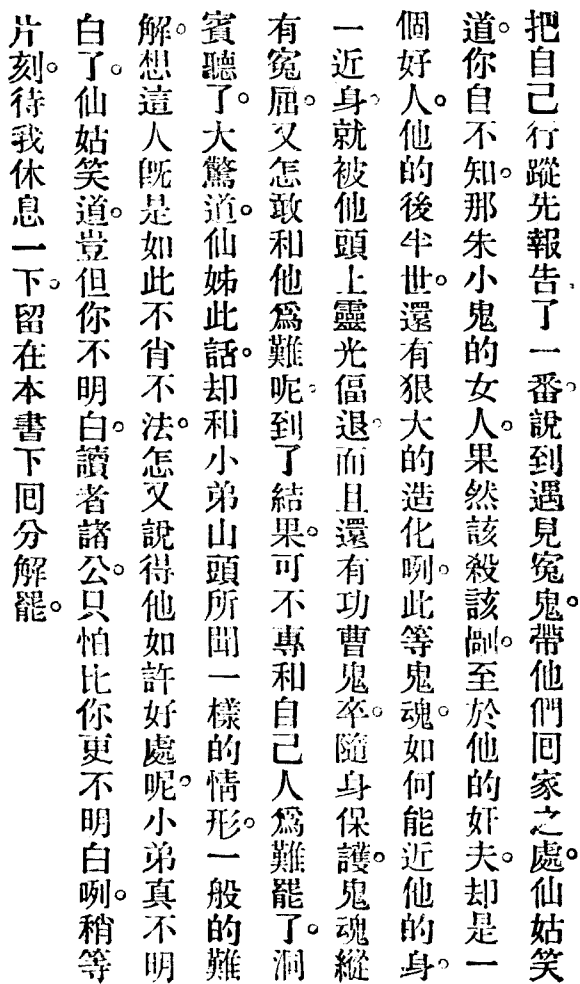 把自己行蹤先報告了一番。說到遇見冤鬼。帶他們囘家之處。仙姑笑
道。你自不知。那朱小鬼的女人。果然該殺該剮。至於他的奸夫。却是一
個好人。他的後半世。還有狠大的造化咧。此等鬼魂。如何能近他的身。
一近身。就被他頭上靈光偪退。而且還有功曹鬼卒。隨身保護。鬼魂縱
有冤屈。又怎敢和他爲難呢。到了結果。可不專和自己人爲難罷了。洞
賓聽了。大驚道。仙姊此話。却和小弟山頭所聞一樣的情形。一般的難
解。想這人旣是如此不肖不法。怎又說得他如許好處呢。小弟真不明
白了。仙姑笑道。豈但你不明白。讀者諸公。只怕比你更不明白咧。稍等
片刻。待我休息一下。留在本書下囘分解罷。